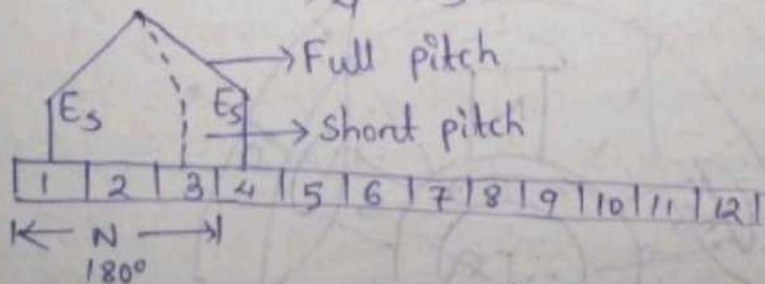 Full pitch
Es Es
Short pitch
1 2 3 4 5 6 7 8 9 10 11 12
N
180°